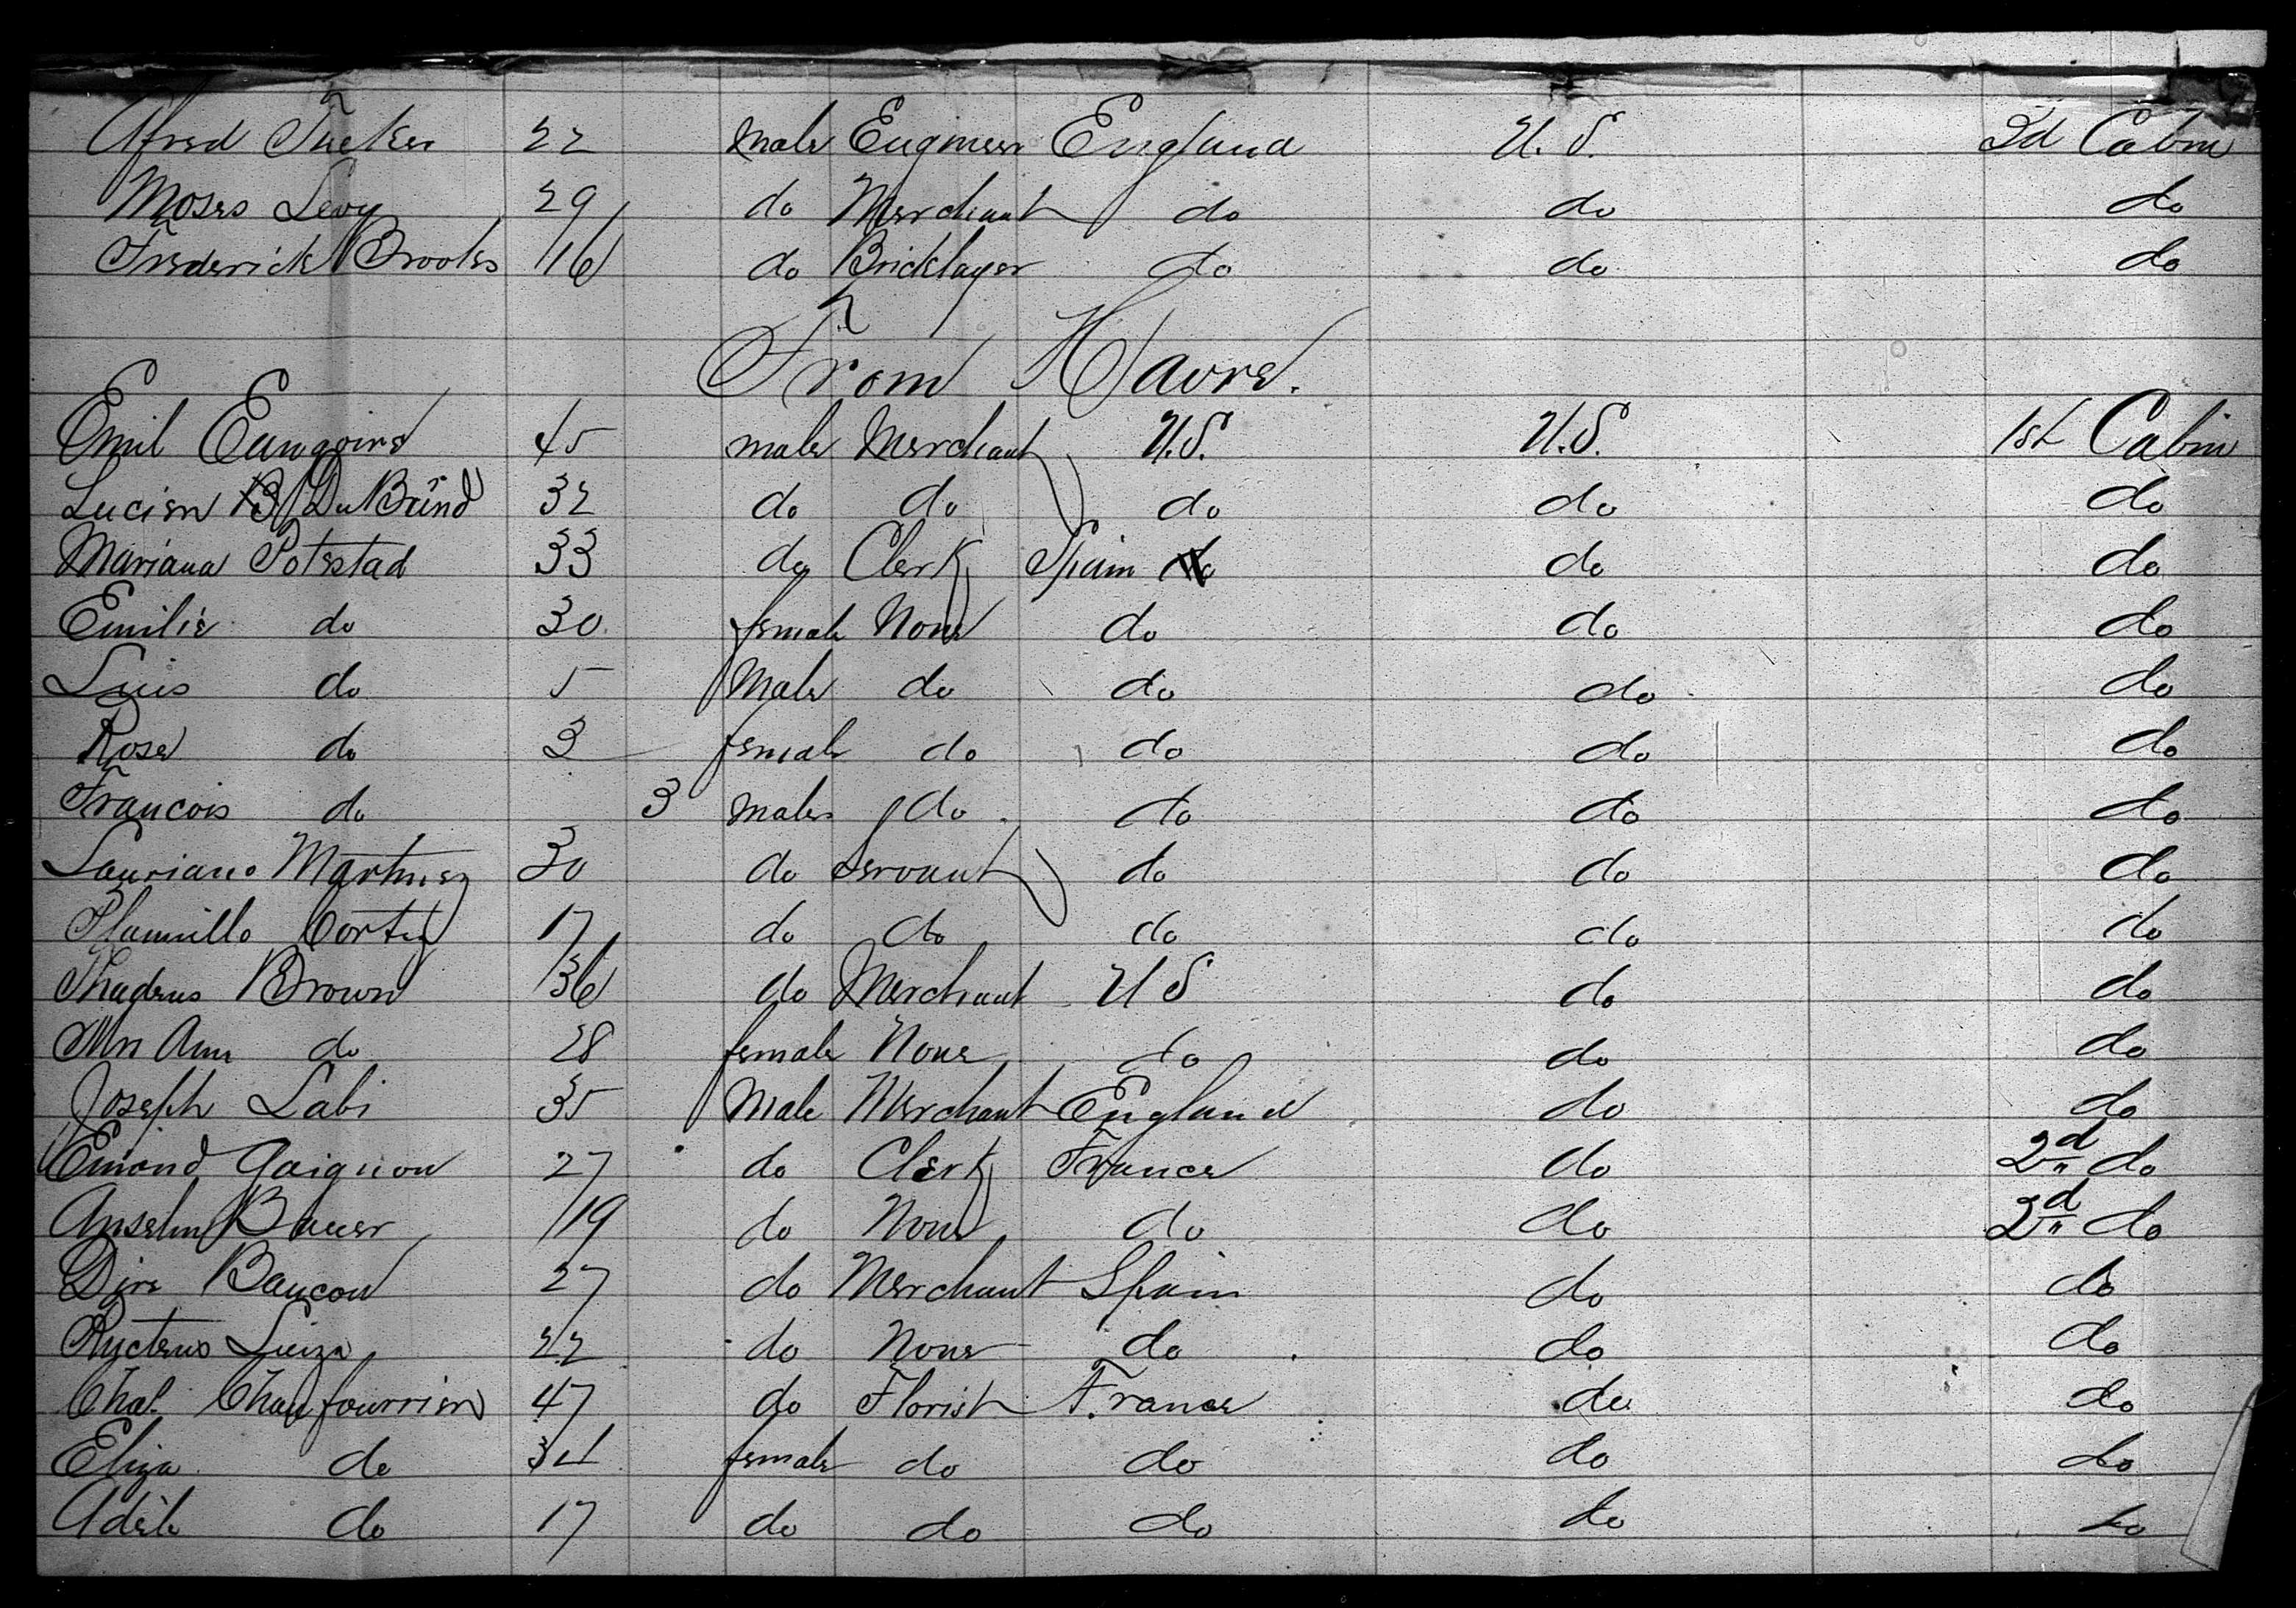 Afred Tucker 22 male Engineer England U.S. 2d Cabin
Moses Levy 29 do Merchant do do do
Frederick Brooks 16 do Bricklayer do do do
From Havre.
Emil 45 male Merchant U.S. U.S. 1st Cabin
Lucien B 32 do do do do do
Mariana Potestad 33 do Clerk Spain do do
Emilie do 30 female None do do do
Luis do 5 Male do do do do
Rose do 3 female do do do do
Francois do 3 male do do do do
Lauriano Martinez 30 do Servant do do do
Cortez 17 do do do do do
Thadeus Brown 36 do Merchant U S do do
Mrs Ann do 28 female None do do do
Joseph Labi 35 Male Merchant England do do
Emond Gaignon 27 do Clerk France do 2d do
Anselm Bauer 19 do None do do 2d do
Baucon 27 do Merchant Spain do do
Luiza 22 do None do do do
Chas. Chaufourrien 47 do Florist France do do
Eliza do 34 female do do do do
Adèle do 17 do do do do do